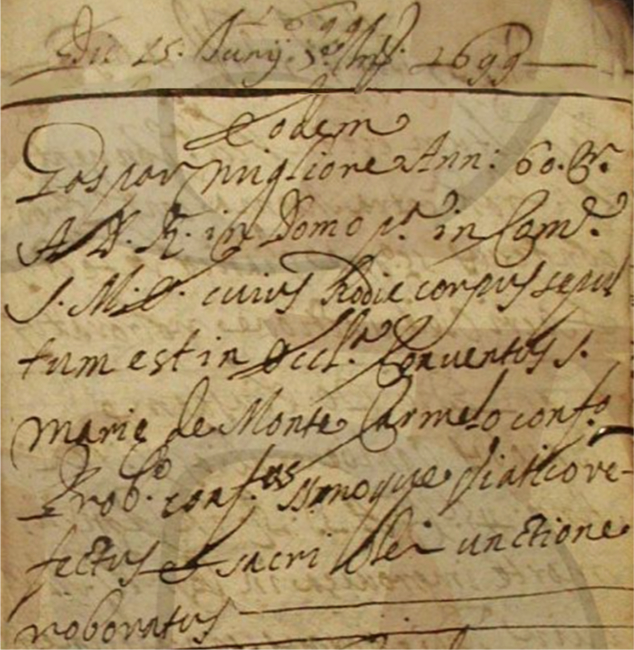 Die 25. Junij 1699
Eodem
Gaspar migliore Ann: 60. Cr.
A. D. R. in Domo pr. in Com.e
S. M. E. cuius hodie corpus sepul
tum est in Eccl.a Conventus S.
Marie de Monte Carmelo conf.o
Prob.o conf.us Smoque Viatico re-
fectus & sacri Olei unctione
roboratus